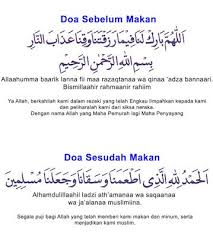 Doa Sebelum Makan
اَللّٰهُمَّ بَارِكْ لَنَا فِيْمَا رَزَقْتَنَا وَقِنَا عَذَابَ النَّارِ
بِسْمِ اللّٰهِ الرَّحْمٰنِ الرَّحِيْمِ
Allaahumma baarik lanna fii maa razaqtanaa wa qinaa 'adza bannaari.
Bismillaahir rahmaanir rahiim
Ya Allah, berkahilah kami dalam rezaki yang telah Engkau limpahkan kepada kami
dan peliharalah kami dari siksa neraka.
Dengan nama Allah yang Maha Pemurah lagi Maha Penyayang
Doa Sesudah Makan
اَلْحَمْدُ لِلّٰهِ الَّذِيْ اَطْعَمَنَا وَسَقَانَا وَجَعَلَنَا مُسْلِمِيْنَ
Alhamdulillaahil ladzi ath'amanaa wa saqaanaa
wa ja'alanaa muslimiina.
Segala puji bagi Allah yang telah memberi kami makan dan minum, serta
menjadikan kami muslim.